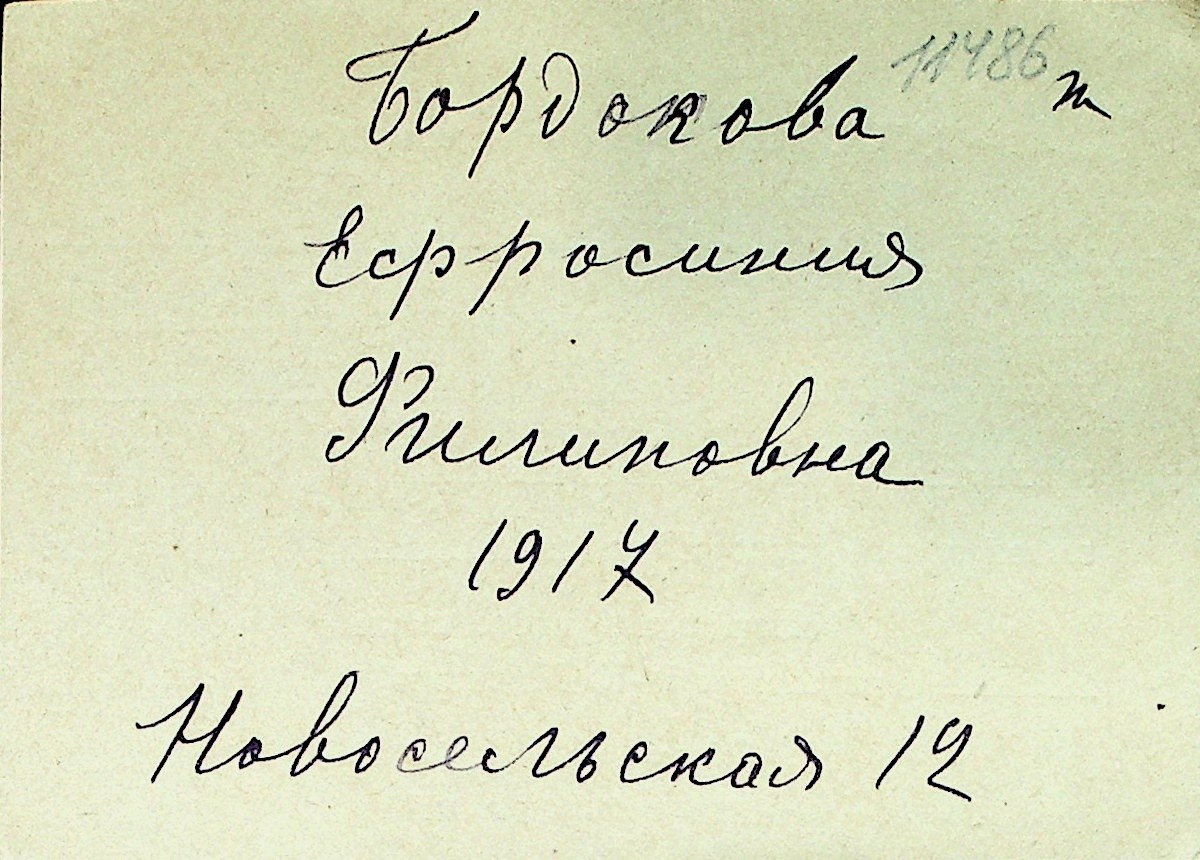 Бордокова 11486
Ефросиния
Филиповна
1917
Новосельская 12